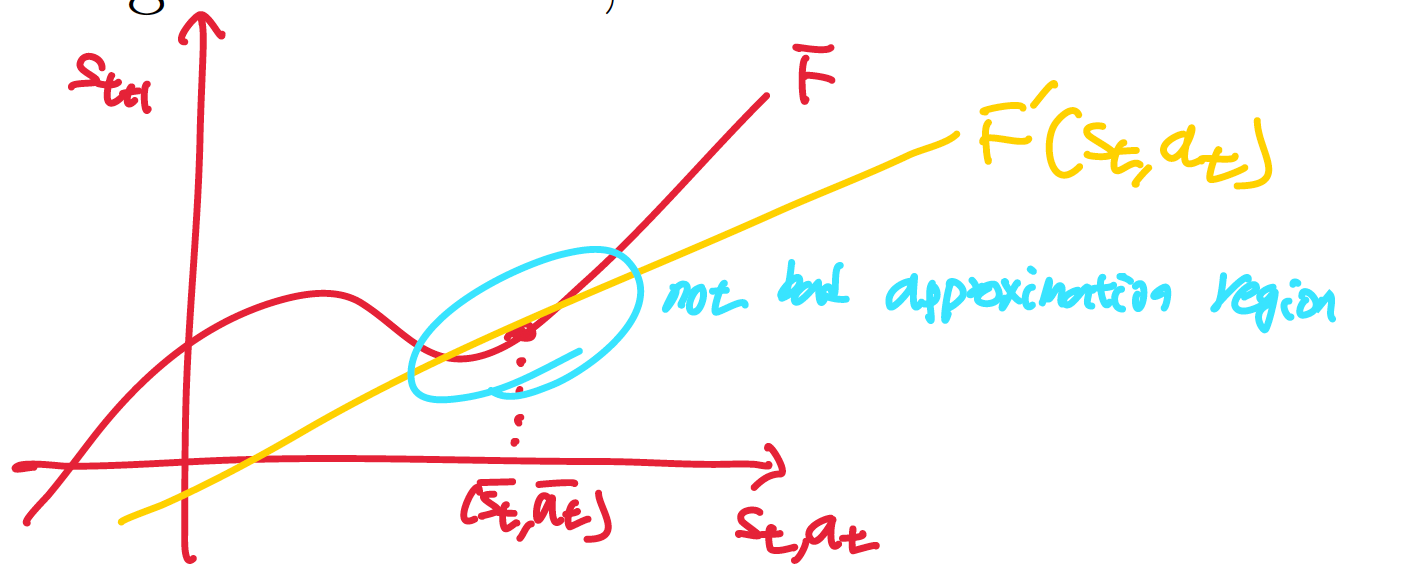 S_{t+1}
F̅
F̅'(s_t, a_t)
not bad approximation region
(s̅_t, a̅_t)
s_t, a_t